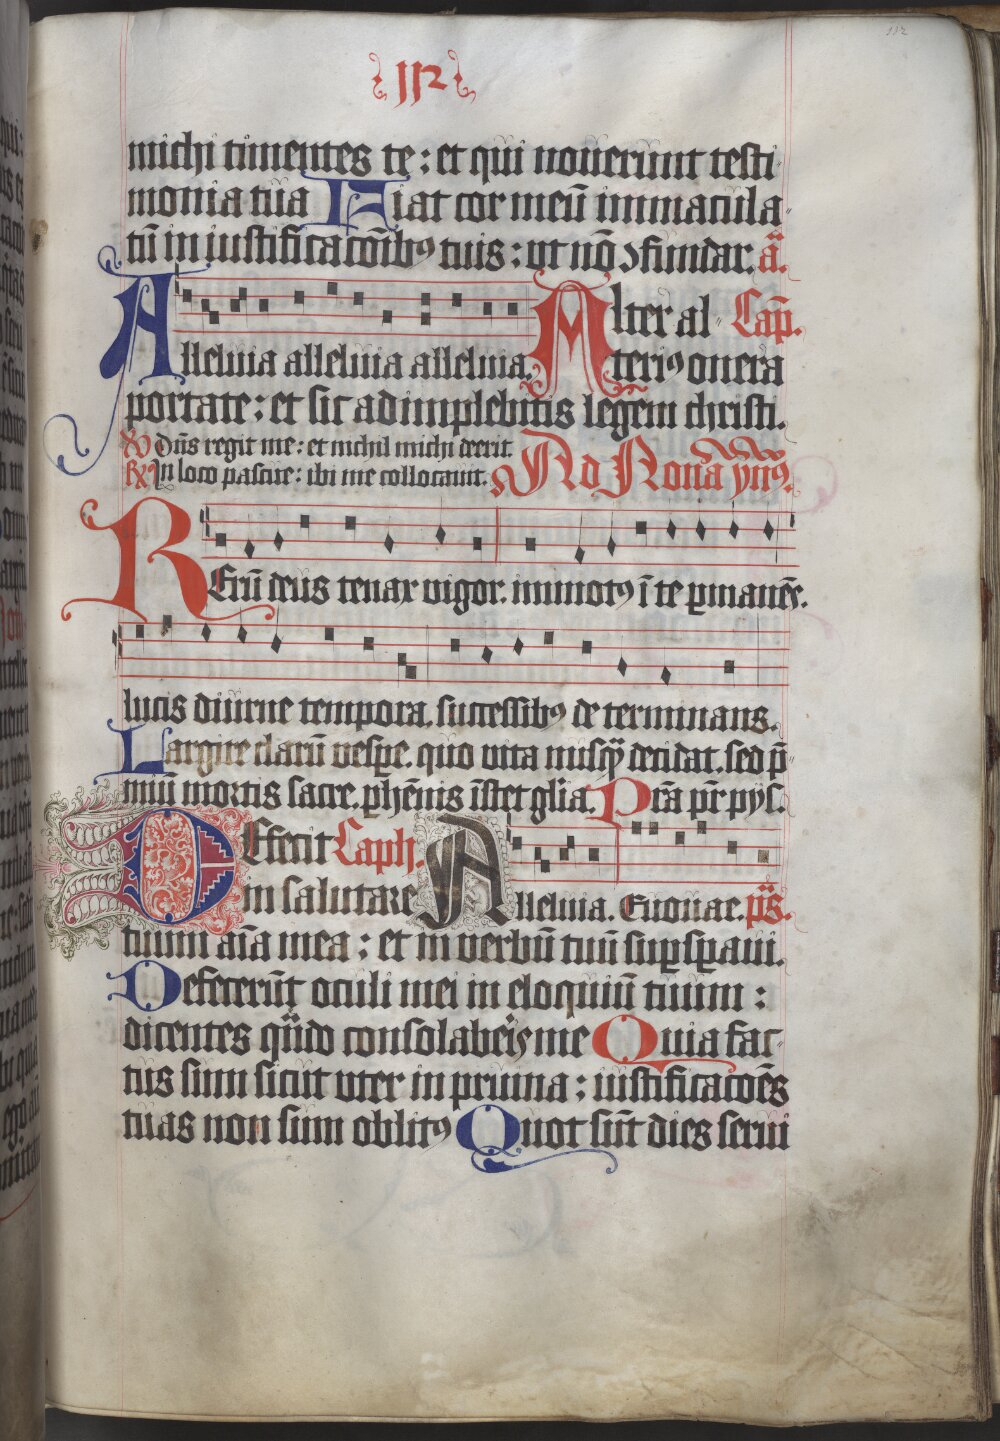 112
112
michi timentes te : et qui nouerunt testi
monia tua Fiat cor meū immacula
tū in iustificacōibꝯ tuis : ut nō ↄfundar. a̅.
Alter al Cap̄.
Alleluia alleluia alleluia. teriꝯ onera
portate : et sic adimplebitis legem christi.
℣ Dn̄s regit me : et nichil michi deerit.
℟ In loco pascue : ibi me collocauit. Ad Nonā ymꝯ.
REru deus tenax vigor. immotꝯ ī te ꝑmanēs.
lucis diurne tempora. successibꝯ determinans.
Largire clarū vespe. quo vita nusq̄ decidat. sed p̄
miū mortis sacre. ꝑhēnis īstet gl̄ia. Pr̄a pr̄ pyſ.
DEfecit Caph.
in salutare Alleluia. Euouae. p̄s.
tuum aīa mea : et in verbū tuū suꝑsꝑaui.
Defecerūt oculi mei in eloquiū tuum :
dicentes qn̄do consolabeis me Quia fac
tus sum sicut uter in pruina : iustificacōes
tuas non sum oblitꝯ Quot sūt dies serui